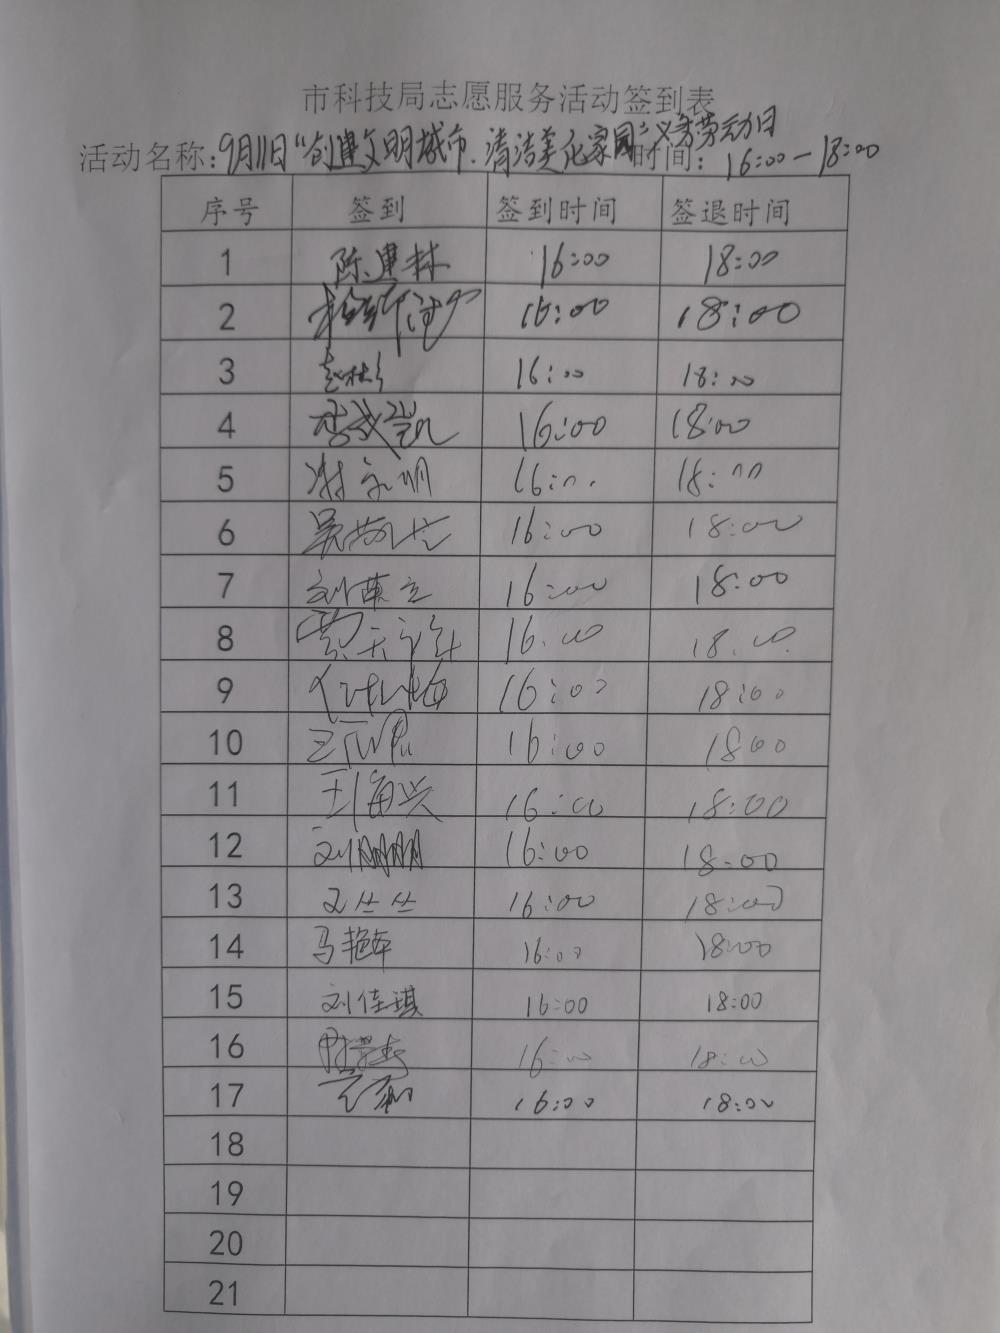 市科技局志愿服务活动签到表
活动名称：9月11日“创建文明城市、清洁美化家园”义务劳动日 时间：16:00-18:00
序号 签到 签到时间 签退时间
1 陈建林 16:00 18:00
2 16:00 18:00
3 16:00 18:00
4 李成凯 16:00 18:00
5 谢永明 16:00 18:00
6 16:00 18:00
7 刘英立 16:00 18:00
8 16:00 18:00
9 16:00 18:00
10 16:00 1800
11 王海兴 16:00 18:00
12 刘朋朋 16:00 18:00
13 王丛丛 16:00 18:00
14 马艳车 16:00 18:00
15 刘佳琪 16:00 18:00
16 16:00 18:00
17 16:00 18:00
18
19
20
21